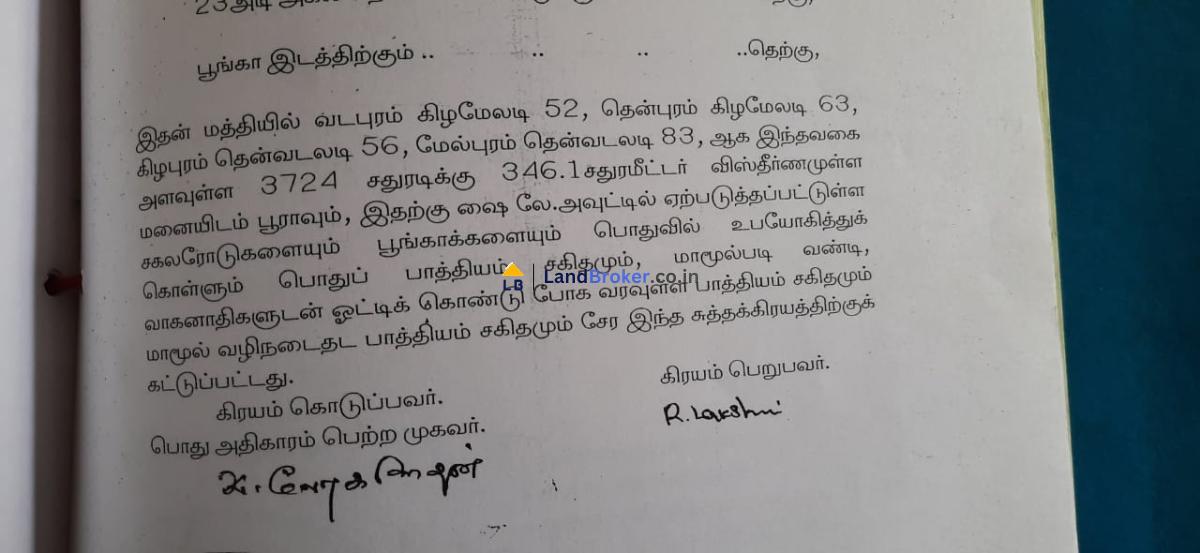 23அடி
பூங்கா இடத்திற்கும் .. .. .. ..தெற்கு,
இதன் மத்தியில் வடபுரம் கிழமேலடி 52, தென்புரம் கிழமேலடி 63,
கிழபுரம் தென்வடலடி 56, மேல்புரம் தென்வடலடி 83, ஆக இந்தவகை
அளவுள்ள 3724 சதுரடிக்கு 346.1சதுரமீட்டர் விஸ்தீர்ணமுள்ள
மனையிடம் பூராவும், இதற்கு ஷை லே.அவுட்டில் ஏற்படுத்தப்பட்டுள்ள
சகலரோடுகளையும் பூங்காக்களையும் பொதுவில் உபயோகித்துக்
கொள்ளும் பொதுப் பாத்தியம் சகிதமும், மாமூல்படி வண்டி,
LB | LandBroker.co.in
வாகனாதிகளுடன் ஓட்டிக் கொண்டு போக வரவுள்ள பாத்தியம் சகிதமும்
மாமூல் வழிநடைதட பாத்தியம் சகிதமும் சேர இந்த சுத்தக்கிரயத்திற்குக்
கட்டுப்பட்டது.
கிரயம் கொடுப்பவர். கிரயம் பெறுபவர்.
பொது அதிகாரம் பெற்ற முகவர். R. Lakshmi